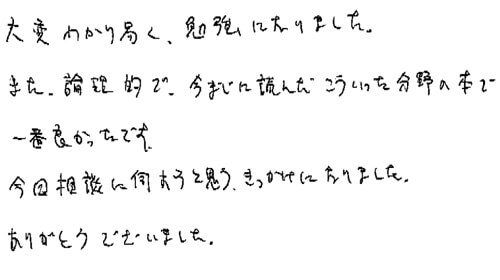 大変わかり易く、勉強になりました。
また、論理的で、今までに読んだこういった分野の本で
一番良かったです。
今回相談に伺おうと思う、きっかけになりました。
ありがとうございました。